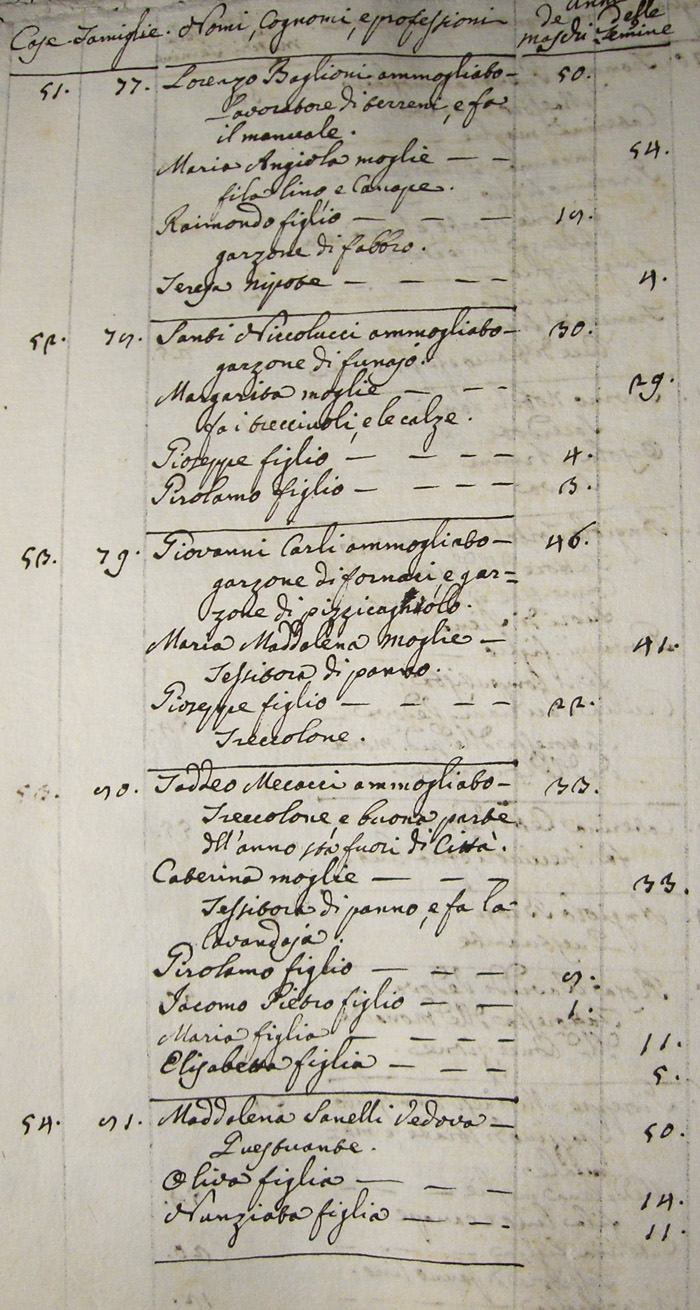 Case. Famiglie. Nomi, Cognomi, e professioni Anni
de maschi delle femine
51. 77. Lorenzo Baglioni ammogliato 50.
Lavoratore di terreni, e fa
il manuale.
Maria Angiola moglie — — 54.
fila lino e Canape.
Raimondo figlio — — — 18.
garzone di fabbro.
Teresa Nipote — — — — 4.
52. 78. Santi Niccolucci ammogliato 30.
garzone di funajo.
Margarita moglie — — - 29.
fa i treccivoli, e le calze.
Gioseppe figlio — — — — 4.
Girolamo figlio — — — — 3.
53. 79. Giovanni Carli ammogliato 46.
garzone di fornaci, e gar=
zone di pizzicagniólo.
Maria Maddalena Moglie — 41.
Tessitora di panno.
Gioseppe figlio — — — — 22.
Treccolone.
53. 80. Taddeo Mecacci ammogliato 33.
Treccolone e buona parte
dell'anno stà fuori di Città.
Caterina moglie — — — 33.
Tessitora di panno, e fa la
lavandaja.
Girolamo figlio — — — 8.
Jacomo Pietro figlio — — 1.
Maria figlia — — — — 11.
Elisabetta figlia — — — 5.
54. 81. Maddalena Sanelli Vedova — 50.
Questuante.
Oliva figlia — — — 14.
Nunziata figlia — — - 11.